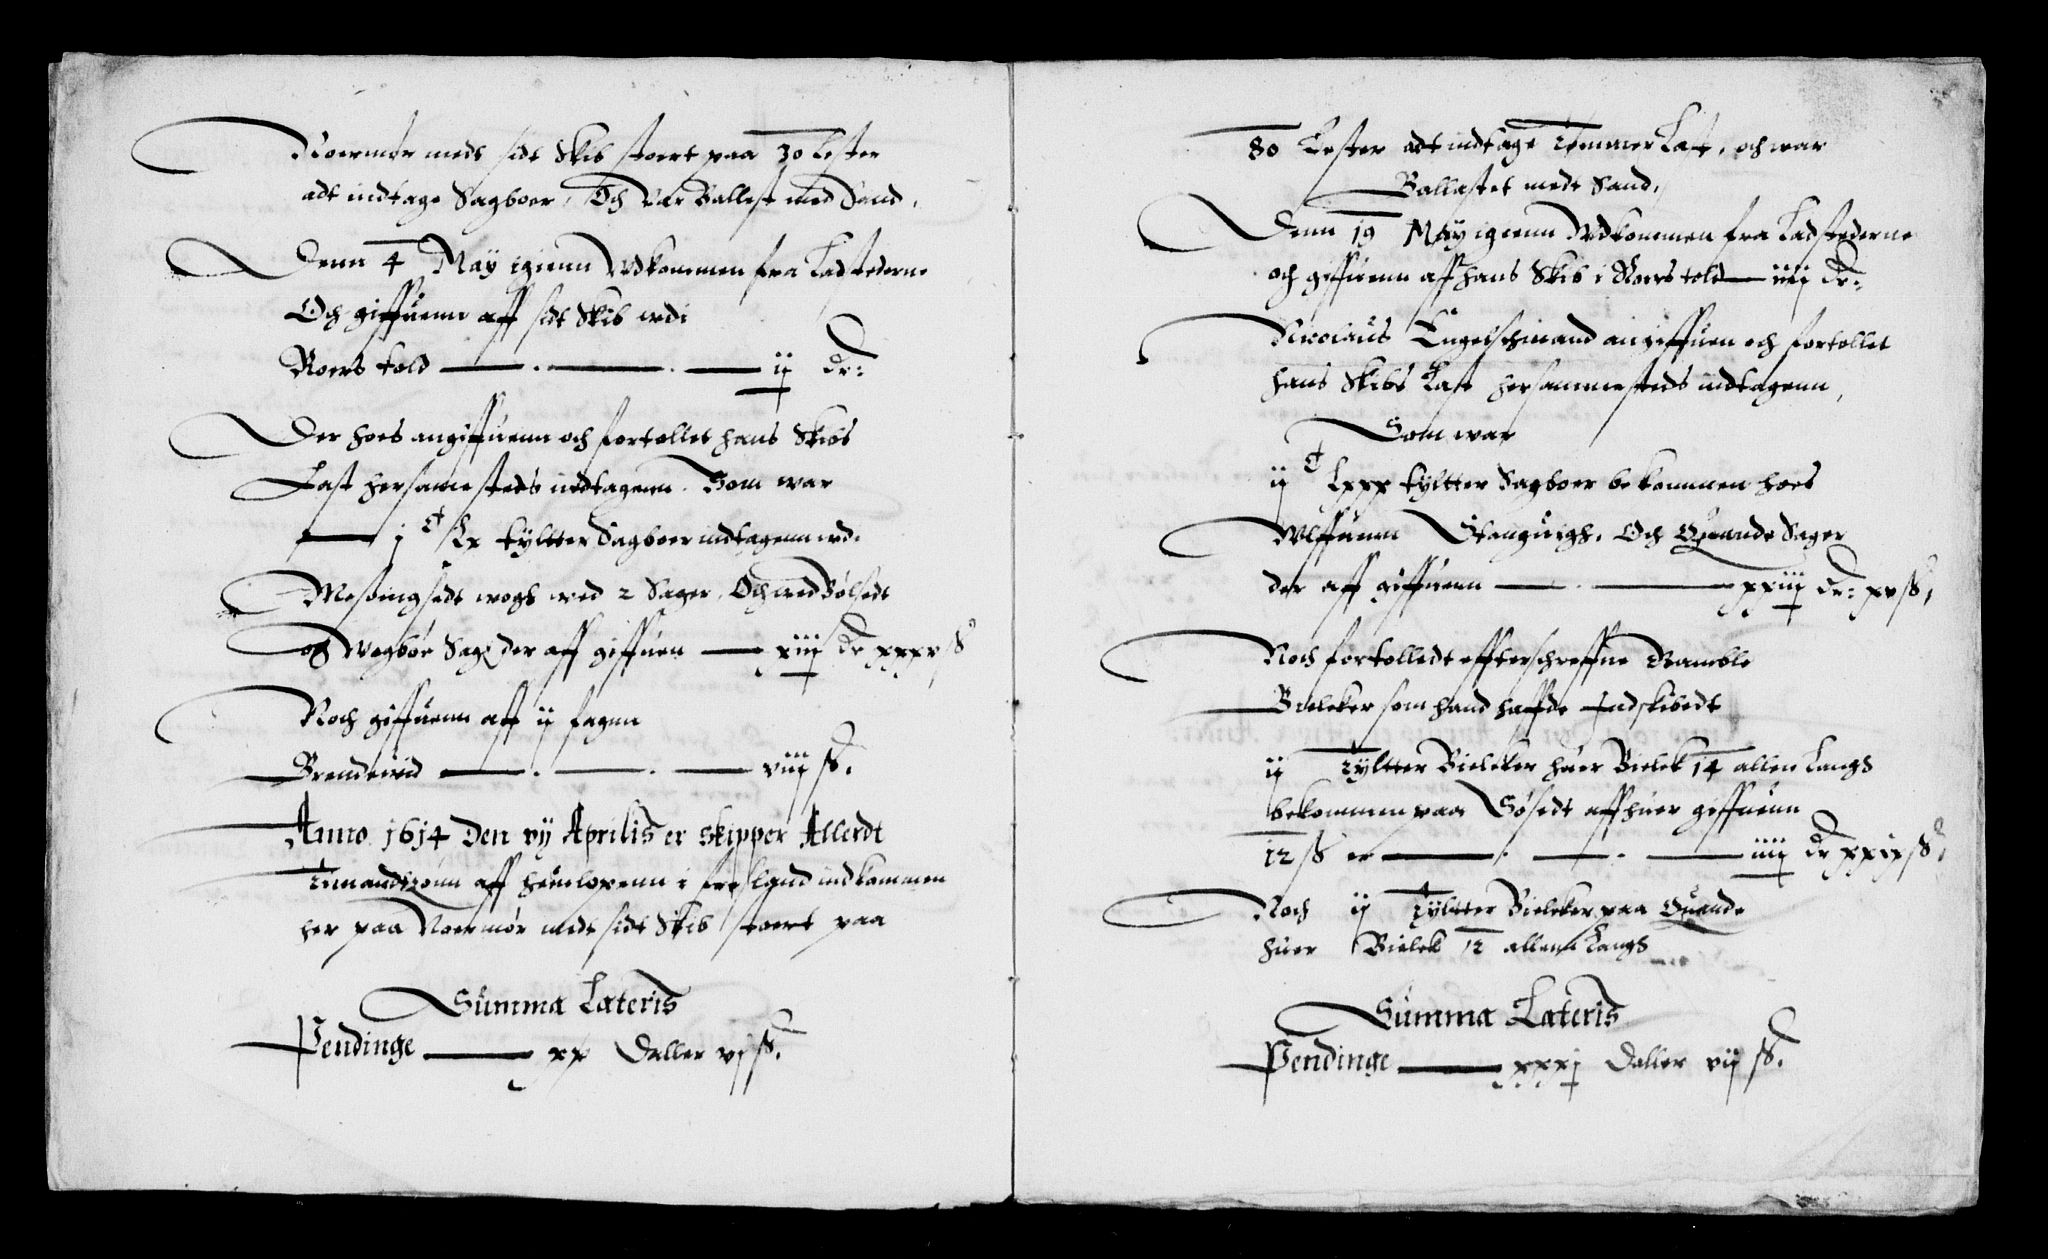 Noermør medt sidt Skib stoert paa 30 Lester
adt indtage Sagboer, Och var Ballest med Sand,
Denn 4 May igienn Wdkommen fra Ladstederne
Och giffuenn aff sidt Skib udi
Roers told ij dr:
Der hoes angiffuenn och fortollet hans Skibs
Last hersamesteds indtagenn. Som war
j C Lx tyltter Sagboer indtagenn ved.
wogh ved 2 Sager, Och ved Bølsedt
og Wegbør Sag, der aff giffuen xiiij dr xxxv ß
Noch giffuenn aff ij fagnn
Brendewid viij ß.
Anno 1614 Den vij Aprilis er skipper Allerdt
aff Heimlopenn i Frißland indkommen
her paa Noermør medt sidt Skib stoert paa
Summa Lateris
Pendinge xx Daller vj ß.
80 Lester adt indtage Temmer Last, och war
Ballastet medt Sand,
Denn 19 May igienn Wdkommen fra Ladstederne
och giffuenn aff hans Skib i Roers told iiij dr:
Nicolaus Engelschmand angiffuen och fortollet
hans Skibs Last hersammesteds indtagenn,
Som war
ij C Lxxx tyltter Sagboer bekommen hoes
Wlffuenn Och Quande Sager
der aff giffuenn xxiij dr: xv ß,
Noch fortolledt effterschreffne Ramble
Bielcker som hand haffde Indskibedt
ij Tyltter Bielcker huer Bielck 14 allen Langs
bekommen paa Søsedt aff huer giffuenn
12 ß er iiij dr xxix ß,
Noch ij Tyltter Bielcker paa Quande
huer Bielck 12 allenn Langs
Summa Lateris
Pendinge xxxj Daller vij ß.